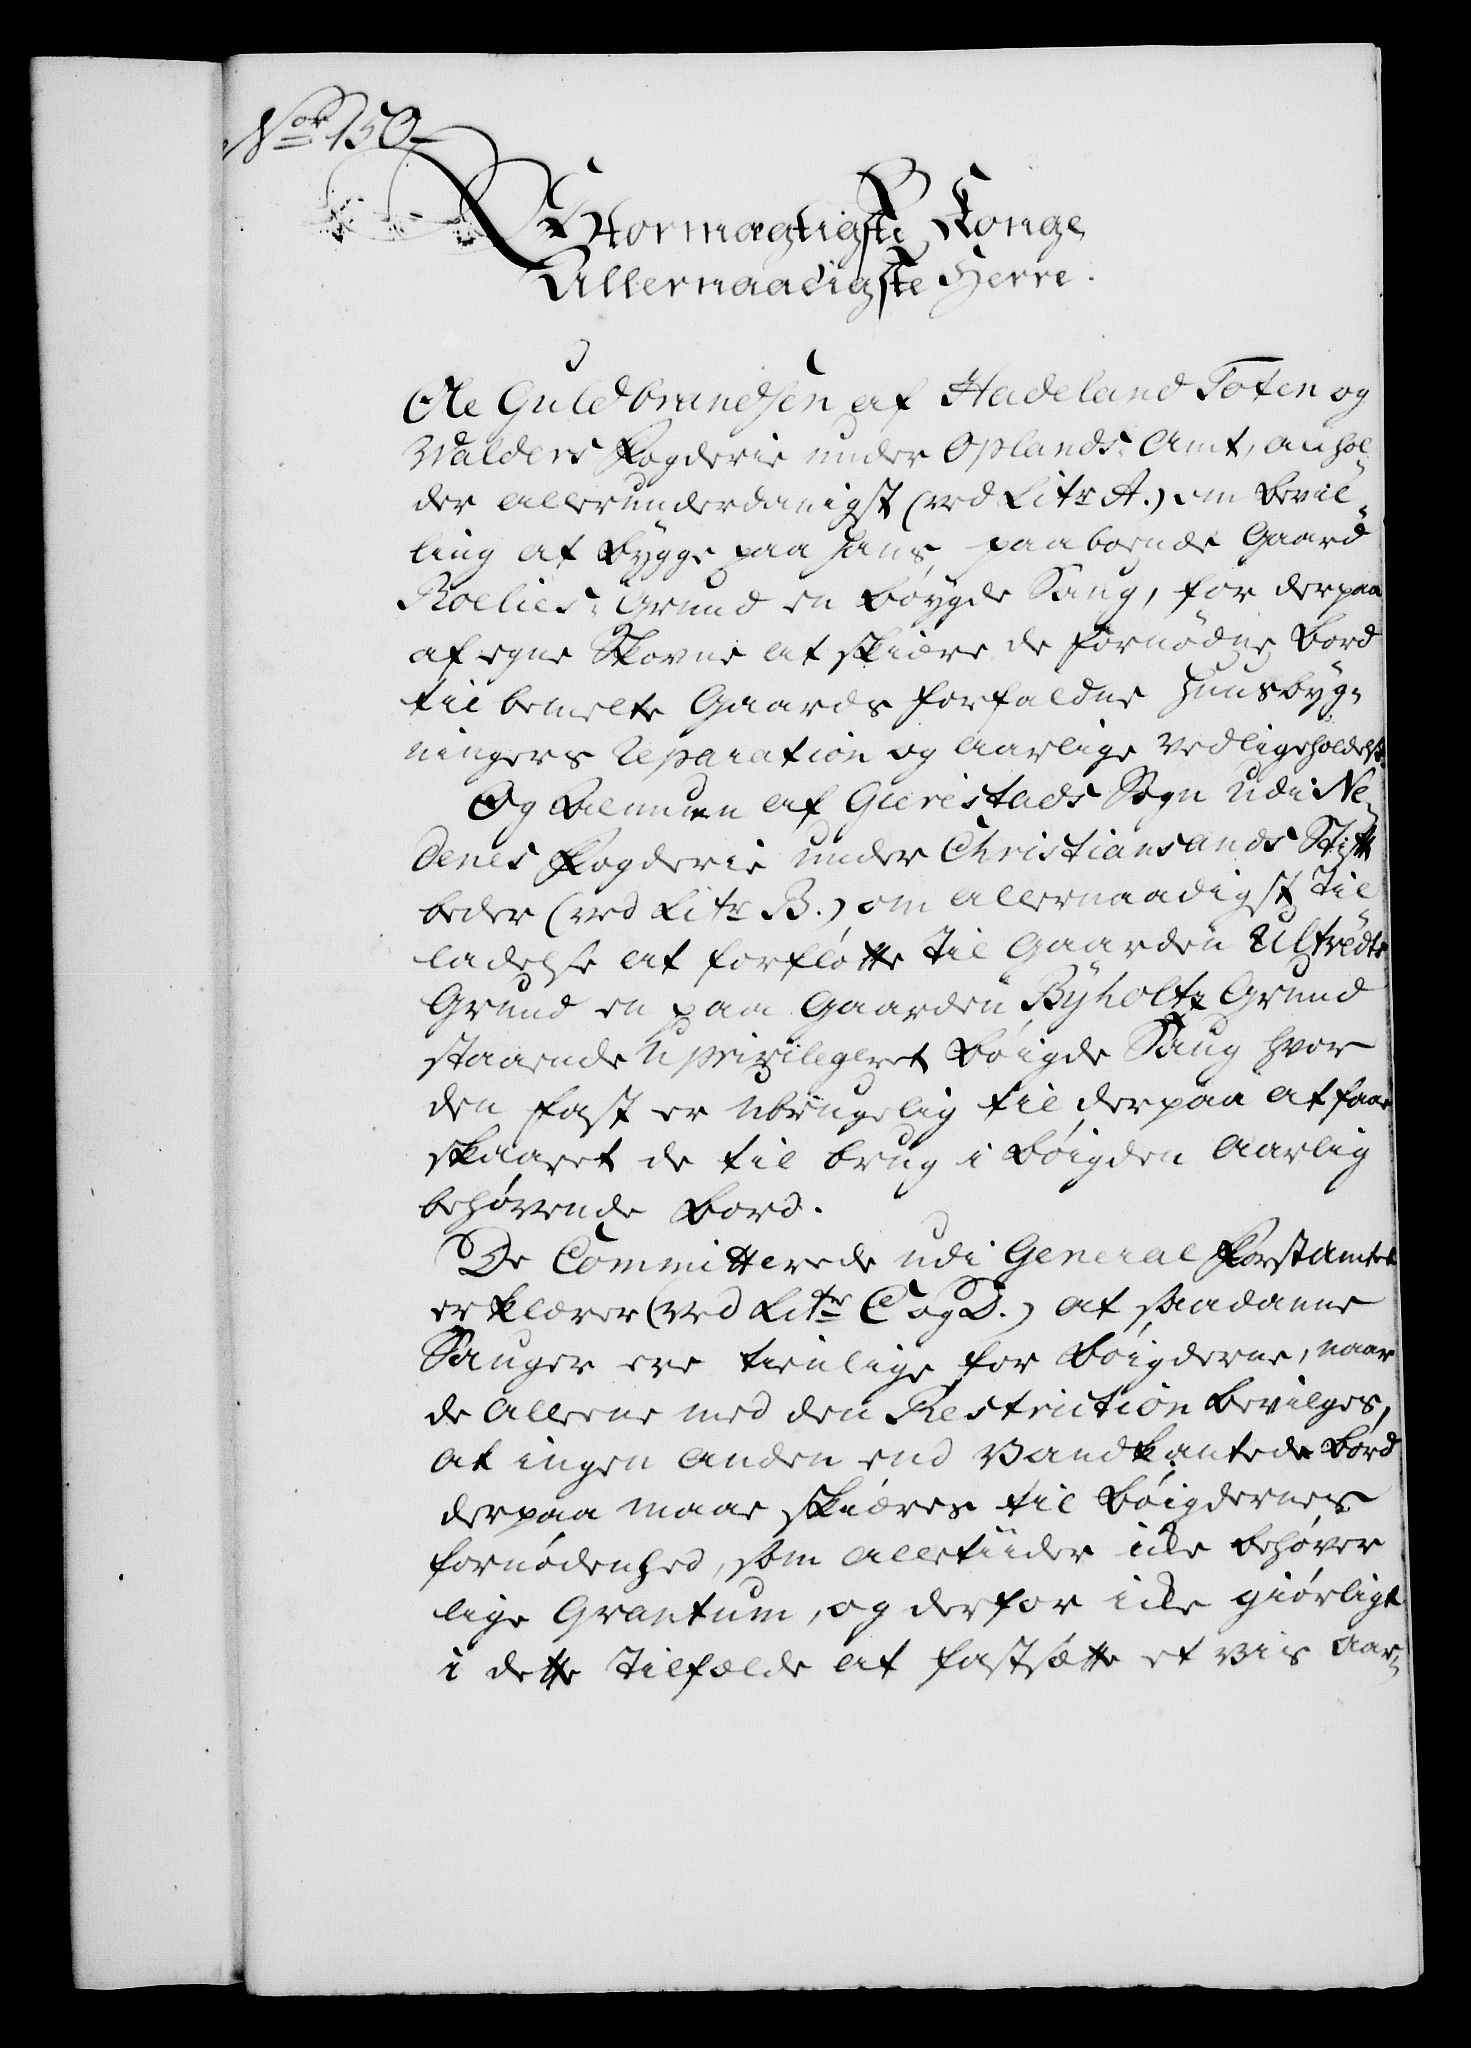 No: 150.
Stormægtigste Konge
Allernaadigste Herre.
Ole Guldbrandsen af Hadeland Toten og
Walders Fogderie under Oplands Amt, anhol-
der allerunderdanigst (ved Litr A.) om Bevil-
ling at bygge paa hans paaboende Gaard
Roelies Grund en Bøygde Saug, for derpaa
af egne Skovne at skiære de fornødne Bord
til bemelte Gaards forfaldne Huusbyg-
ningers Reparation og aarlige Vedligeholdelse.
Og Almuen af Gierestads Sogn udi Ne-
denes Fogderie under Christiansands Stift
beder (ved Litr B.) om allernaadigst Til-
ladelse at forfløtte til Gaarden Ulträdts
Grund en paa Gaarden Byholtz Grund
staaende Uprivilegeret Bøigde Saug hvor
den fast er ubrugelig til derpaa at faae
skaaret de til brug i Bøigden aarlig
behøvende Bord.
De Committerede udi General Forstamtet
erklærer (ved Litr C og D.) at saadanne
Sauger ere tienlige for Bøigderne, naar
de alleene med den Restriction bevilges,
at ingen anden end Vandkantede Bord
derpaa maae skiæres til Bøigdernes
fornødenhed, som alletiider icke behøver
lige Qvantum, og derfor icke giørligt
i dette Tilfælde at fastsætte et vis aar-